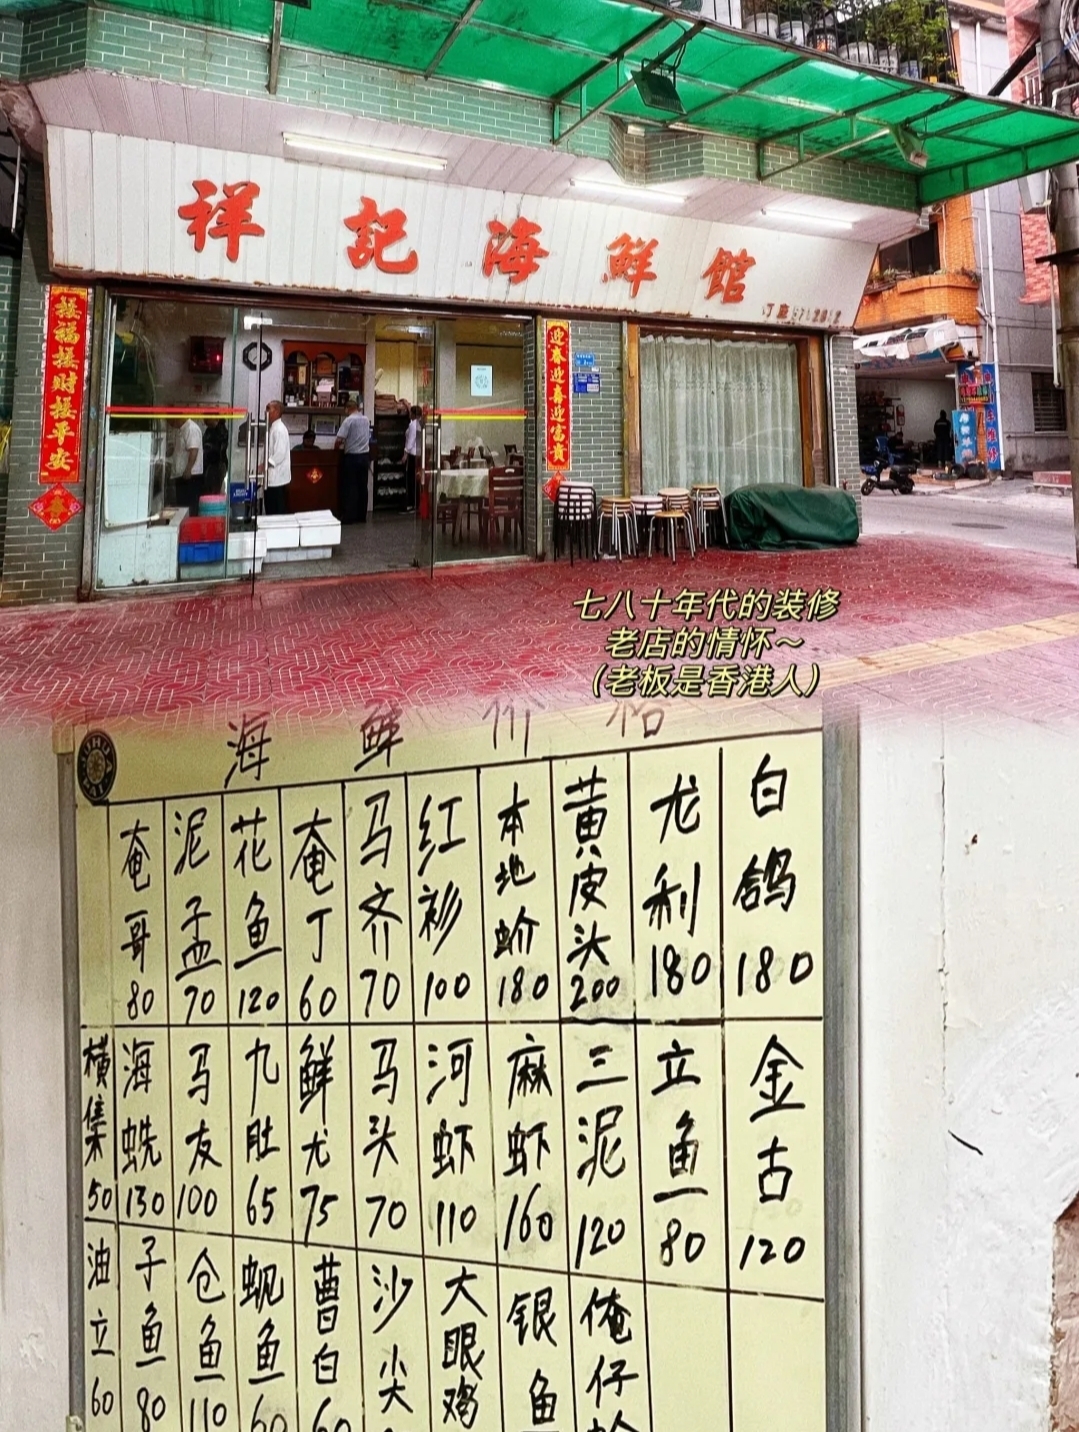 祥記海鮮館
接福接财接平安
迎春迎喜迎富貴
春
七八十年代的装修
老店的情怀～
（老板是香港人）
海鲜价格
奄哥 80
泥孟 70
花鱼 120
奄丁 60
马齐 70
红衫 100
本地蚧 180
黄皮头 200
龙利 180
白鸽 180
横集 50
海蜣 130
马友 100
九肚 65
鲜尤 75
马头 70
河虾 110
麻虾 160
三泥 120
立鱼 80
金古 120
油立 60
子鱼 80
仓鱼 110
蚬鱼 60
曹白 60
沙尖
大眼鸡
银鱼
俺仔